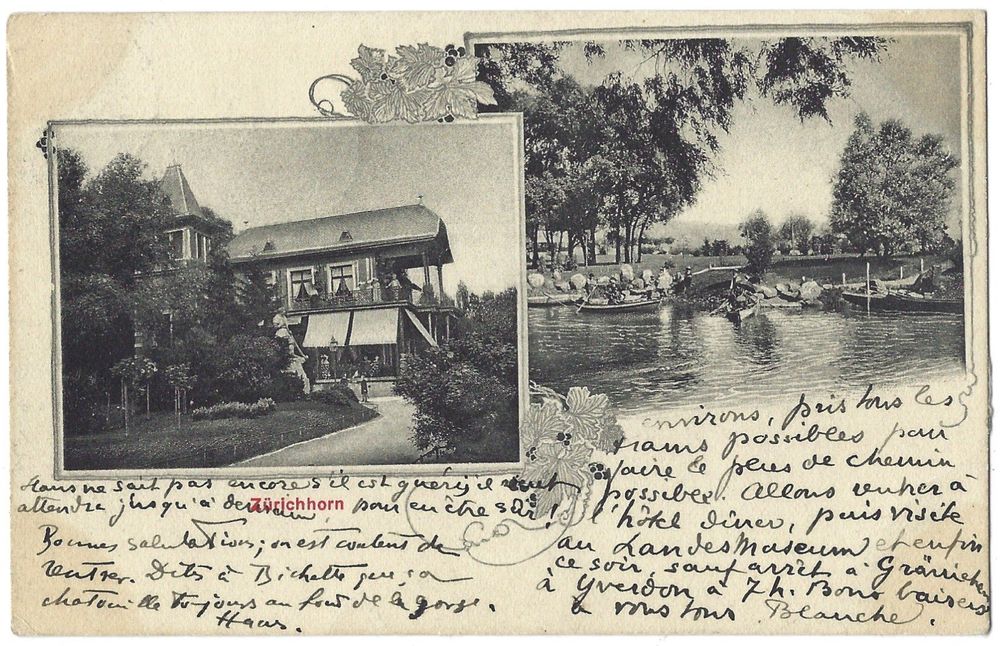 environs, pris tous les
trams possibles pour
faire le plus de chemin
possible. Allons rentrer à
l'hôtel dîner, puis visite
au LandesMuseum et enfin
ce soir, sauf arrêt à Gränichen
à Yverdon à 7h. Bons baisers
à vous tous Blanche.
Hans ne sait pas encore s'il est guéri, il veut
attendre jusqu'à demain, pour en être sûr!
Zürichhorn
Bonnes salutations; on est content de
rentrer. Dites à Bichette que ça
chatouille toujours au fond de la gorge.
Haas.